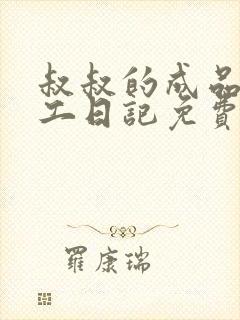 叔叔的成品
工日記免費
羅康瑞